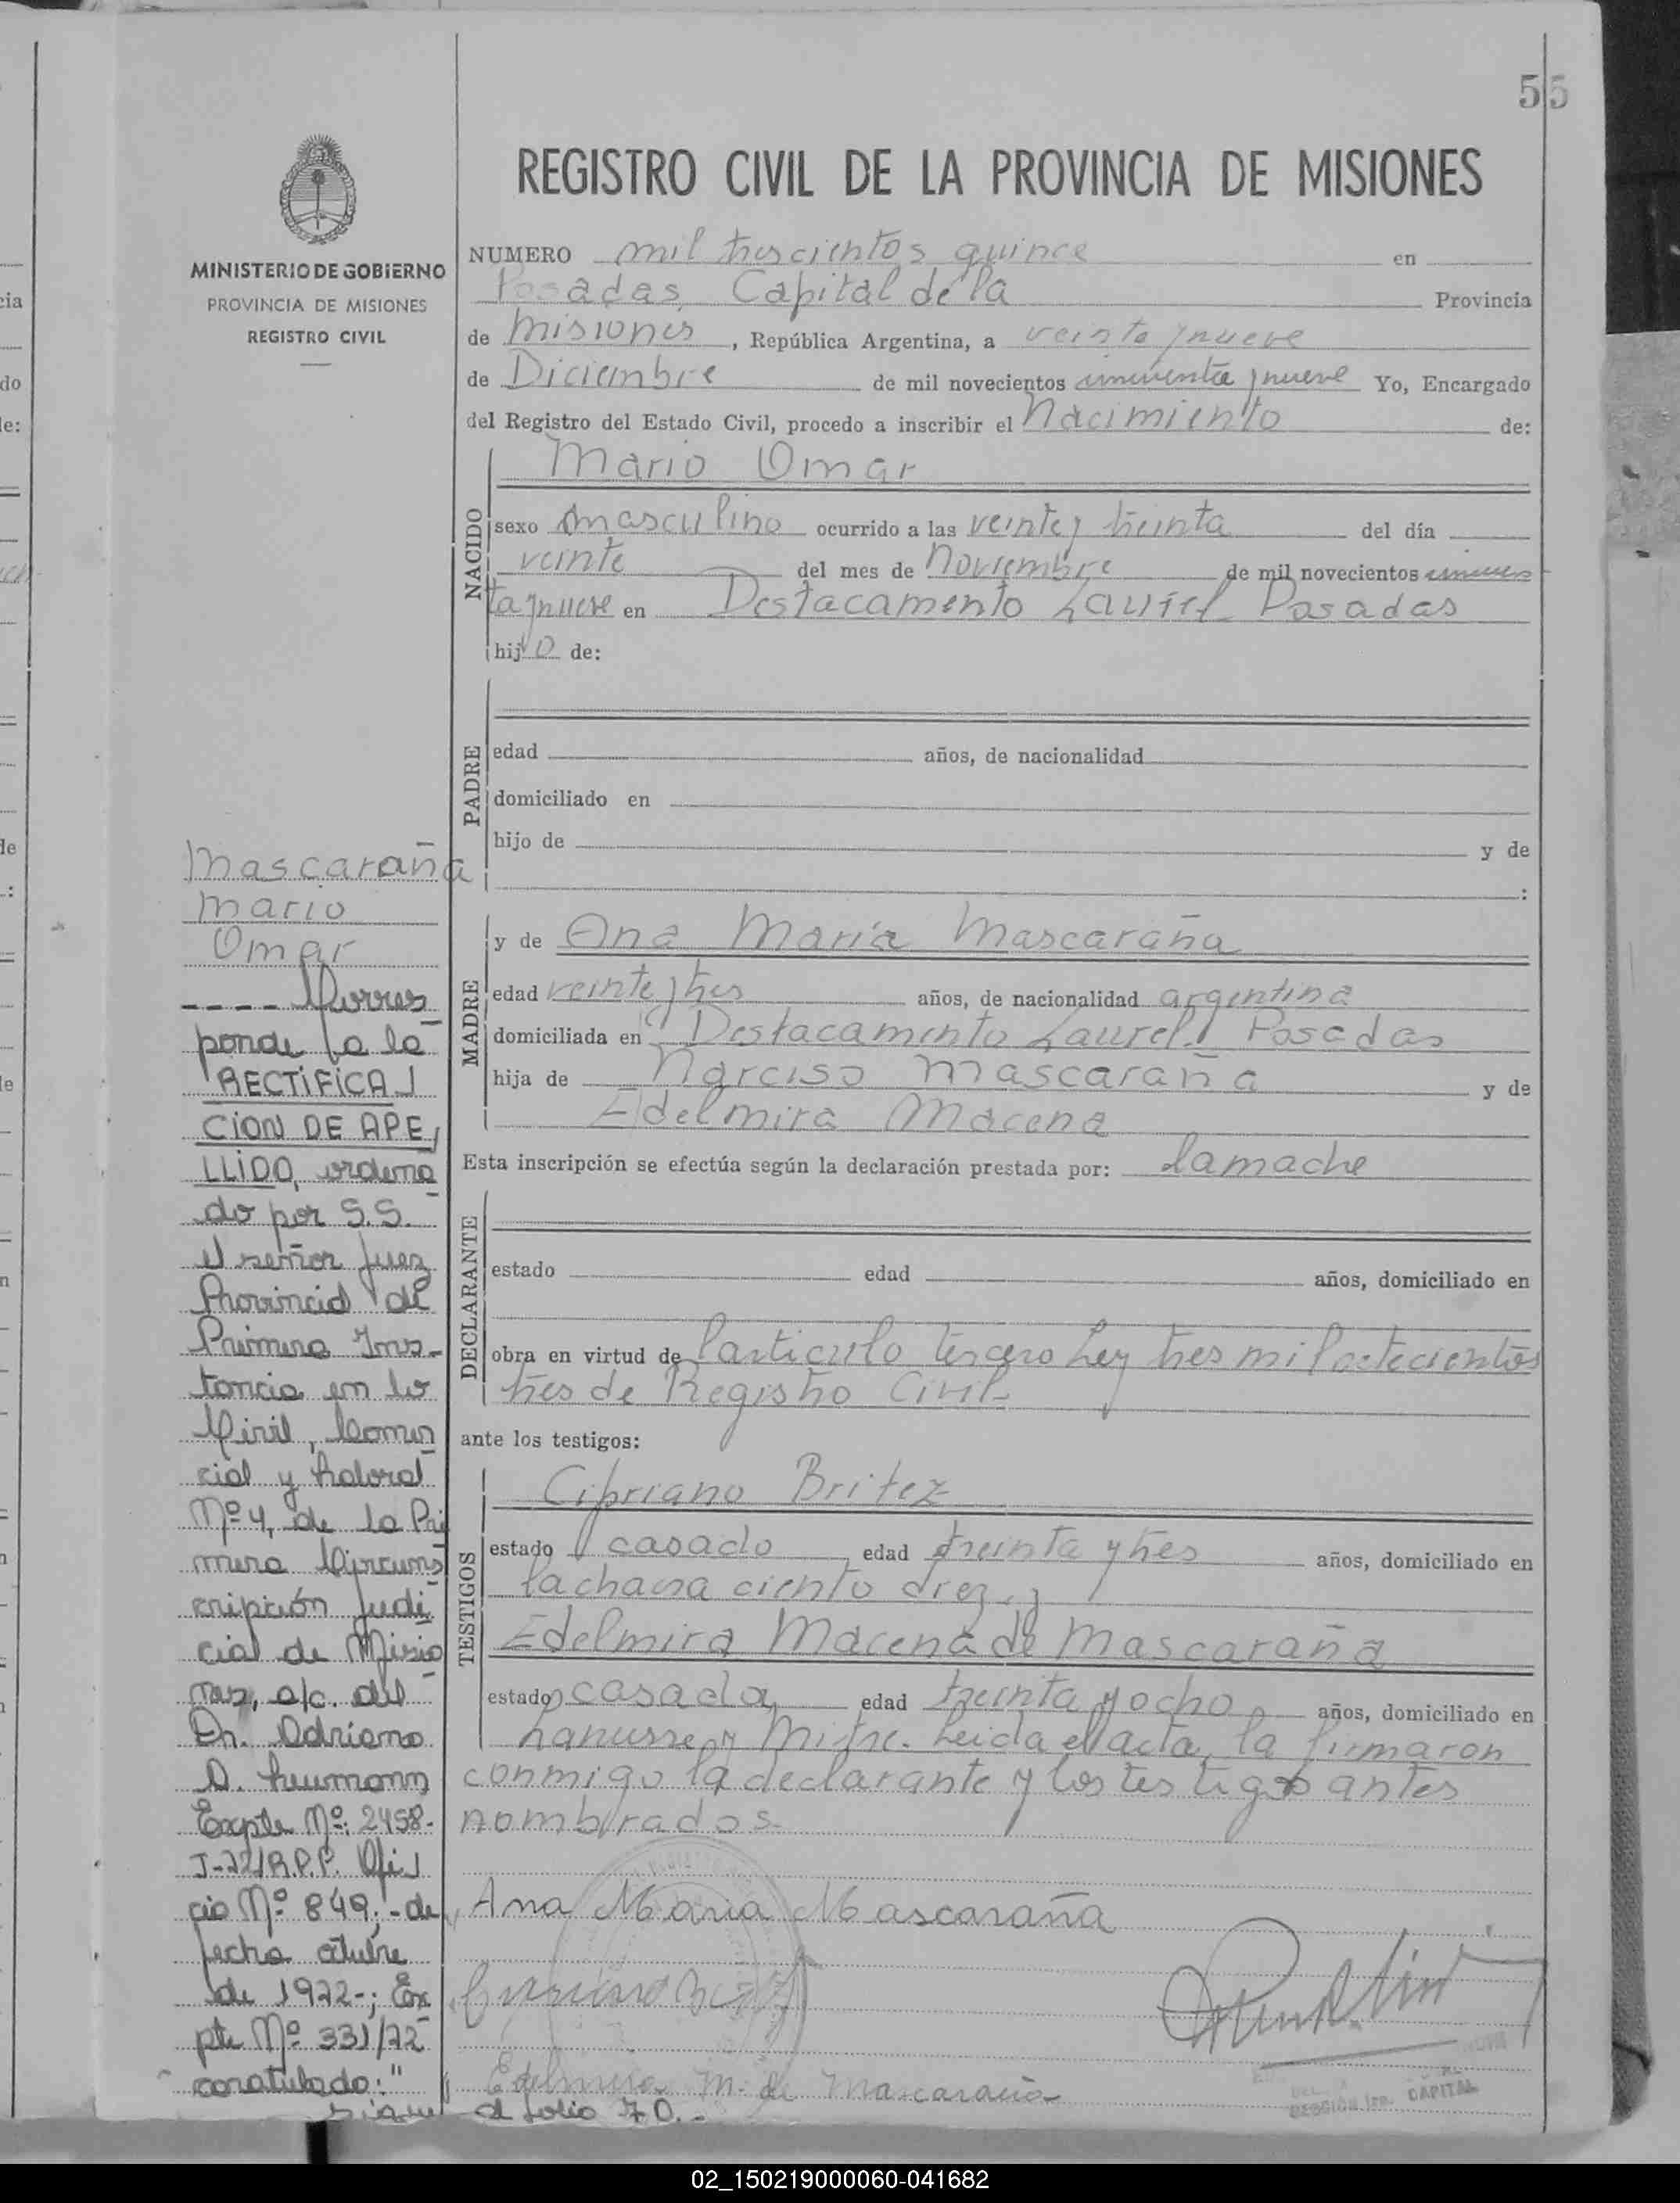 55
REGISTRO CIVIL DE LA PROVINCIA DE MISIONES
MINISTERIO DE GOBIERNO
PROVINCIA DE MISIONES
REGISTRO CIVIL
NUMERO mil trescientos quince en
Posadas, Capital de la Provincia
de Misiones, República Argentina, a veinte y nueve
de Diciembre de mil novecientos cincuenta y nueve Yo, Encargado
del Registro del Estado Civil, procedo a inscribir el Nacimiento de:
NACIDO
Mario Omar
sexo masculino ocurrido a las veinte y treinta del día
veinte del mes de Noviembre de mil novecientos cincuen
ta y nueve en Destacamento Laurel Posadas
hijo de:
PADRE
edad años, de nacionalidad
domiciliado en
hijo de y de
:
MADRE
y de Ana María Mascaraña
edad veinte y tres años, de nacionalidad argentina
domiciliada en Destacamento Laurel Posadas
hija de Narciso Mascaraña y de
Edelmira Macena
Esta inscripción se efectúa según la declaración prestada por: la mache
DECLARANTE
estado edad años, domiciliado en
obra en virtud de l'articulo tercero Ley tres mil setecientos
tres de Registro Civil
ante los testigos:
TESTIGOS
Cipriano Britez
estado casado edad treinta y tres años, domiciliado en
la chacra ciento diez, y
Edelmira Macena de Mascaraña
estado casada, edad treinta y ocho, años, domiciliado en
Lanusse y Mitre. Leida el acta, la firmaron
conmigo la declarante y los testigos antes
nombrados.
Ana Maria Mascaraña
Edelmira M. de Mascaraña
SECCION 1ra. CAPITAL
Mascaraña
Mario
Omar
---- Corres
ponde a la
RECTIFICA
CION DE APE
LLIDO, ordena
do por S.S.
el señor Juez
Provincial de
Primera Ins-
tancia en lo
Civil, Comer
cial y Laboral
Nº 4, de la Pri
mera Circuns
cripción Judi
cial de Misio
nes, a/c. del
Dr. Adriano
D. Neumann
Expte Nº: 2458-
J-72/R.P.P. Ofi
cio Nº 849:- de
fecha octubre
de 1972-; Ex
pte Nº 331/72
caratulado:"
sigue al folio 70.-
02_150219000060-041682